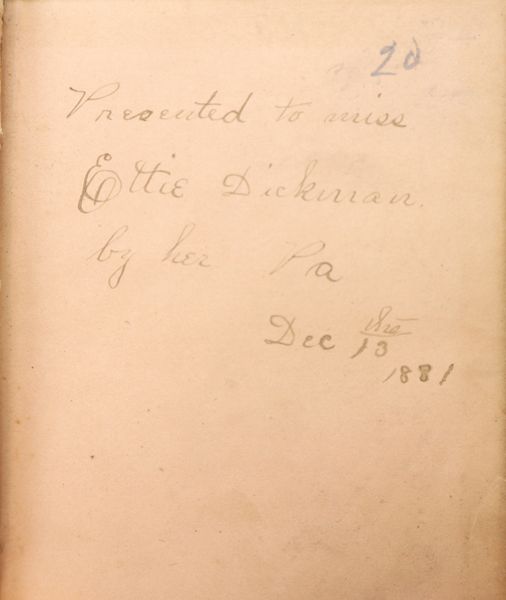 20
Presented to miss
Ettie Dickman.
by her Pa
Dec 13
1881